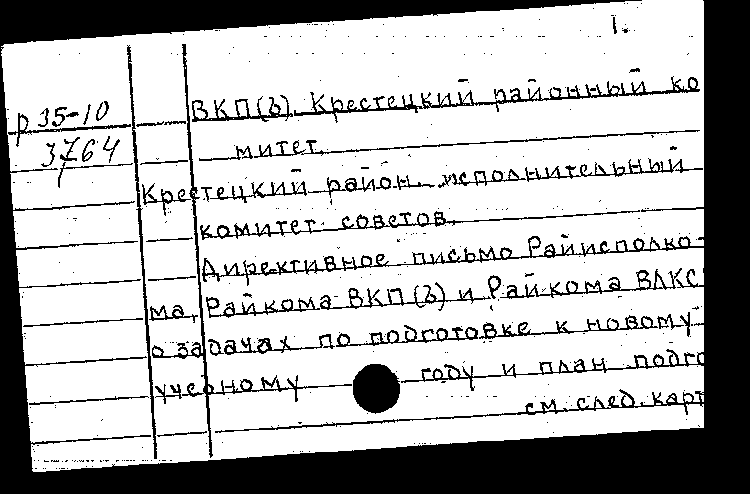 1.
р 35-10
3764
ВКП(б). Крестецкий районный ко
митет.
Крестецкий район. исполнительный
комитет советов.
Директивное письмо Райисполко-
ма, Райкома ВКП(б) и Райкома ВЛКС
о задачах по подготовке к новому
учебному году и план подго
см. след. карт